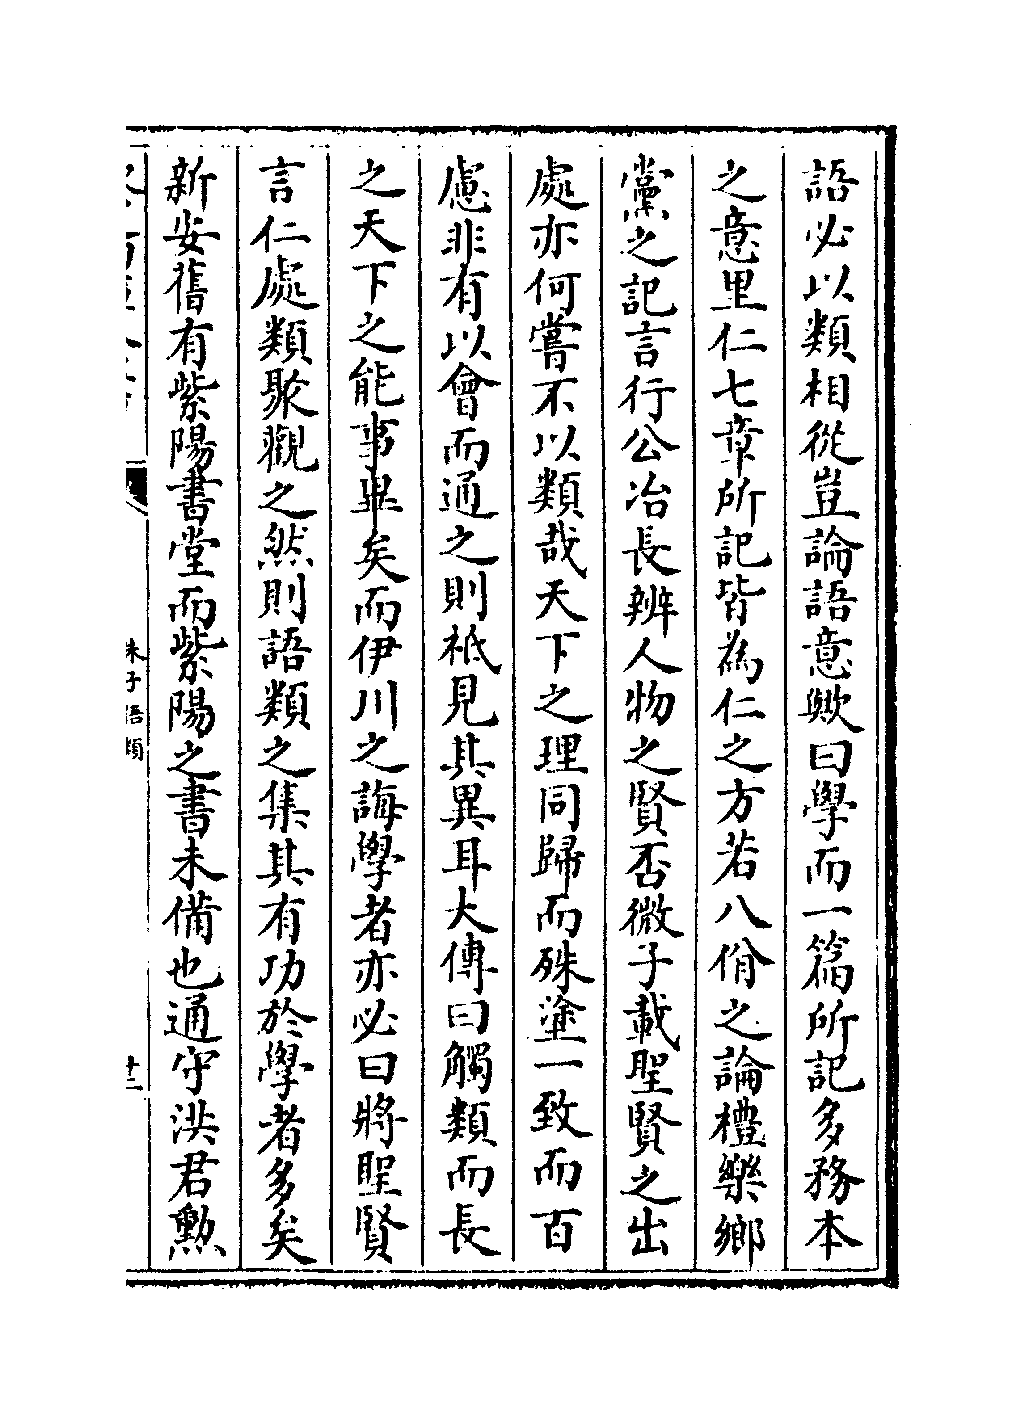 語必以類相從豈論語意歟曰學而一篇所記多務本
之意里仁七章所記皆為仁之方若八佾之論禮樂鄉
黨之記言行公冶長辨人物之賢否微子載聖賢之出
處亦何嘗不以類哉天下之理同歸而殊塗一致而百
慮非有以會而通之則祗見其異耳大傳曰觸類而長
之天下之能事畢矣而伊川之誨學者亦必曰將聖賢
言仁處類聚觀之然則語類之集其有功於學者多矣
新安舊有紫陽書堂而紫陽之書未備也通守洪君勲
朱子語類
十二